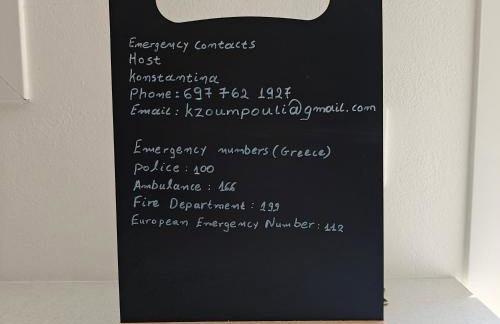 Emergency Contacts
Host
Konstantina
Phone: 697 762 1927
Email: kzoumpouli@gmail.com
Emergency numbers (Greece)
police: 100
Ambulance: 166
Fire Department: 199
European Emergency Number: 112